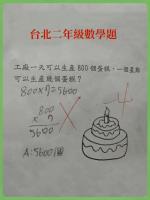 台北二年級數學題
工廠一天可以生產800個蛋糕,一個星期
可以生產幾個蛋糕?
800×7=5600
800
× 7
5600
A:5600個
-4